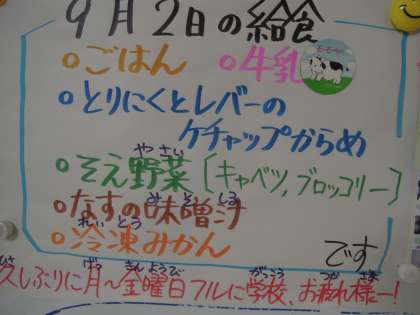 9月2日の給食
○ごはん ○牛乳
○とりにくとレバーの
ケチャップからめ
やさい
○そえ野菜〔キャベツ,ブロッコリー〕
みそしる
○なすの味噌汁
れいとう
○冷凍みかん
です
ひさ げつ きんようび がっこう つか さま
久しぶりに月~金曜日フルに学校、お疲れ様ー!